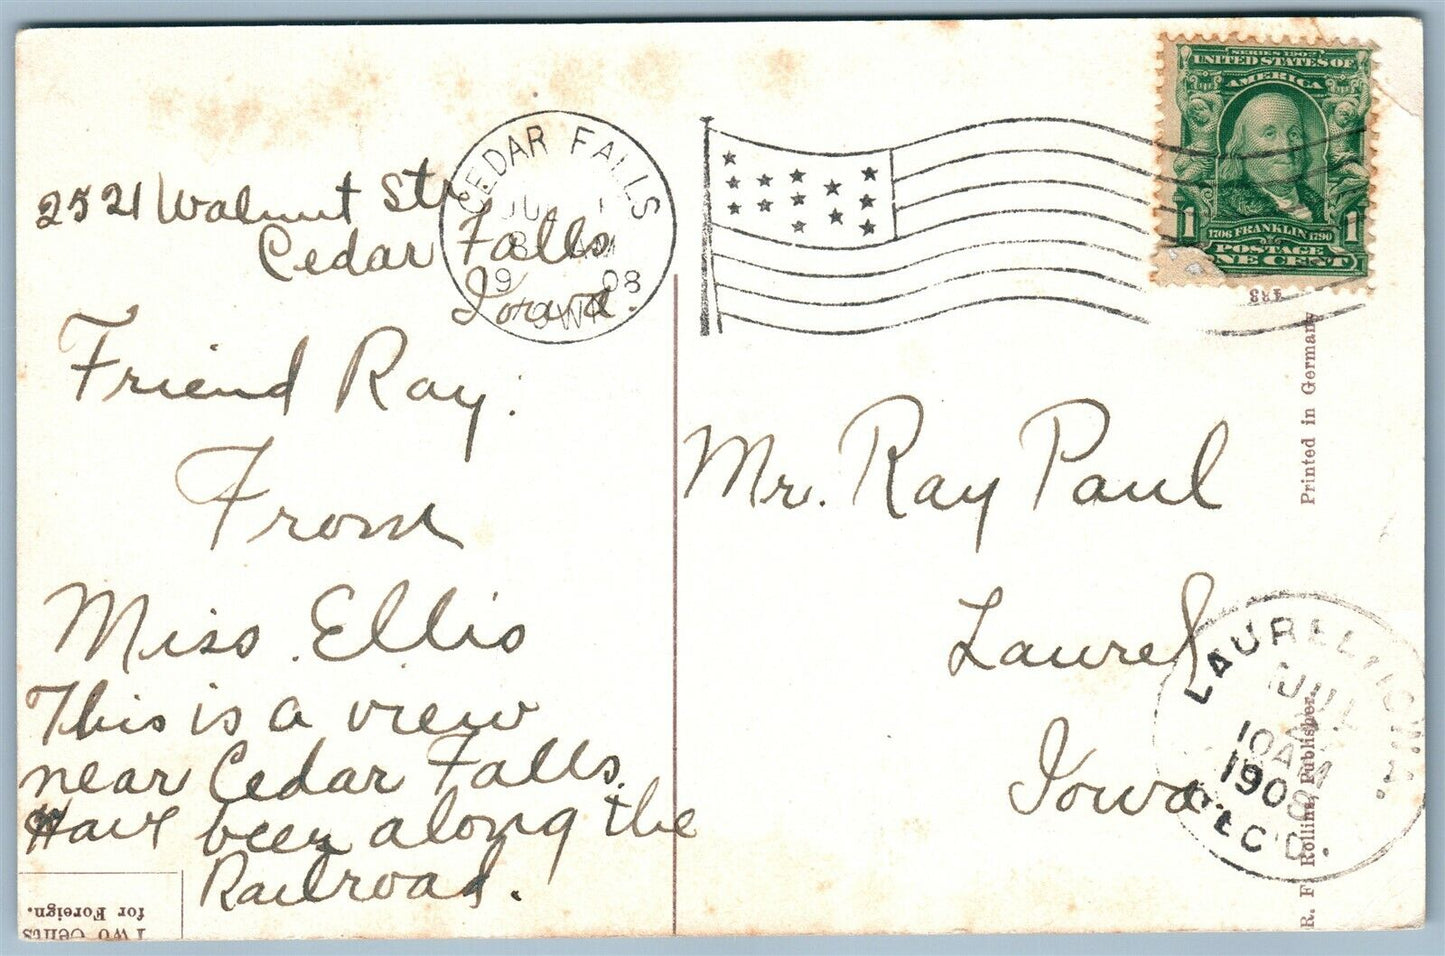 2521 Walnut Str
Cedar Falls
Iowa.
Friend Ray:
From
Miss Ellis
This is a view
near Cedar Falls.
Have been along the
Railroad.
CEDAR FALLS
JUL 1
8 AM
1908
IOWA
SERIES 1902
UNITED STATES OF
AMERICA
1 1
1706 FRANKLIN 1790
POSTAGE
ONE CENT
Mr. Ray Paul
Laurel
Iowa.
LAUREL, IOWA.
JUL
10 AM
1908
REC'D.
Printed in Germany
R. F. Rollins, Publisher.
Two Cents
for Foreign.